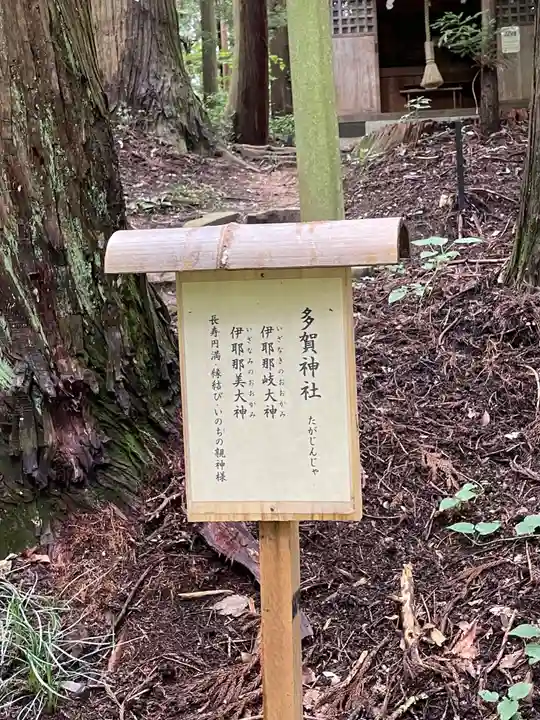 多賀神社
たがじんじゃ
いざなきのおおかみ
伊耶那岐大神
いざなみのおおかみ
伊耶那美大神
長寿円満・縁結び・いのちの親神様